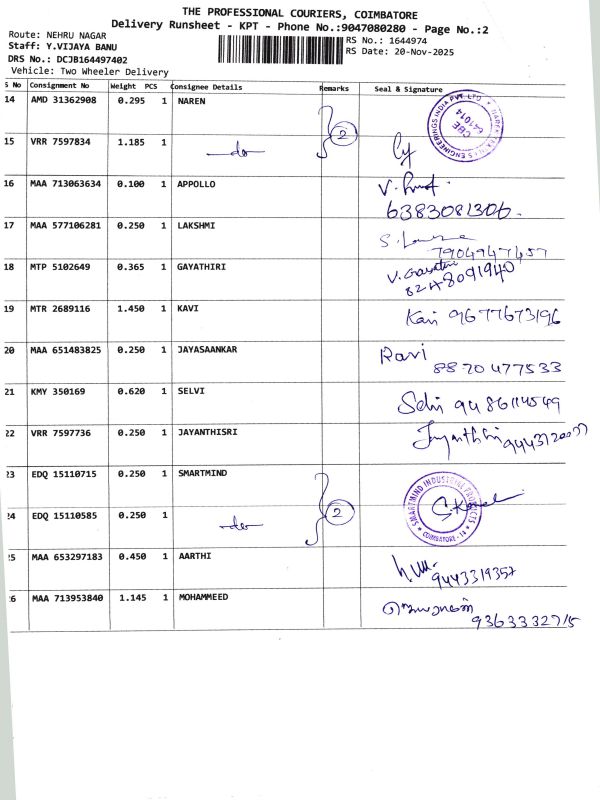 THE PROFESSIONAL COURIERS, COIMBATORE
Delivery Runsheet - KPT - Phone No.:9047080280 - Page No.:2
Route: NEHRU NAGAR
RS No.: 1644974
Staff: Y.VIJAYA BANU
RS Date: 20-Nov-2025
DRS No.: DCJB164497402
Vehicle: Two Wheeler Delivery
S No Consignment No Weight PCS Consignee Details Remarks Seal & Signature
14 AMD 31362908 0.295 1 NAREN
2
CBE 641014
ENGINEERINGS INDIA PVT LTD
15 VRR 7597834 1.185 1 do
16 MAA 713063634 0.100 1 APPOLLO
6383081306.
17 MAA 577106281 0.250 1 LAKSHMI
7904947457
18 MTP 5102649 0.365 1 GAYATHIRI V. Gayathri
8248091940
19 MTR 2689116 1.450 1 KAVI Kavi 9677673196
20 MAA 651483825 0.250 1 JAYASAANKAR Ravi
8870477533
21 KMY 350169 0.620 1 SELVI Selvi 9486114549
22 VRR 7597736 0.250 1 JAYANTHISRI Jayanthisri
23 EDQ 15110715 0.250 1 SMARTMIND
2
SMARTMIND INDUSTRIAL PRODUCTS
COIMBATORE - 14
24 EDQ 15110585 0.250 1 do
25 MAA 653297183 0.450 1 AARTHI
9443319357
26 MAA 713953840 1.145 1 MOHAMMEED
9363332715